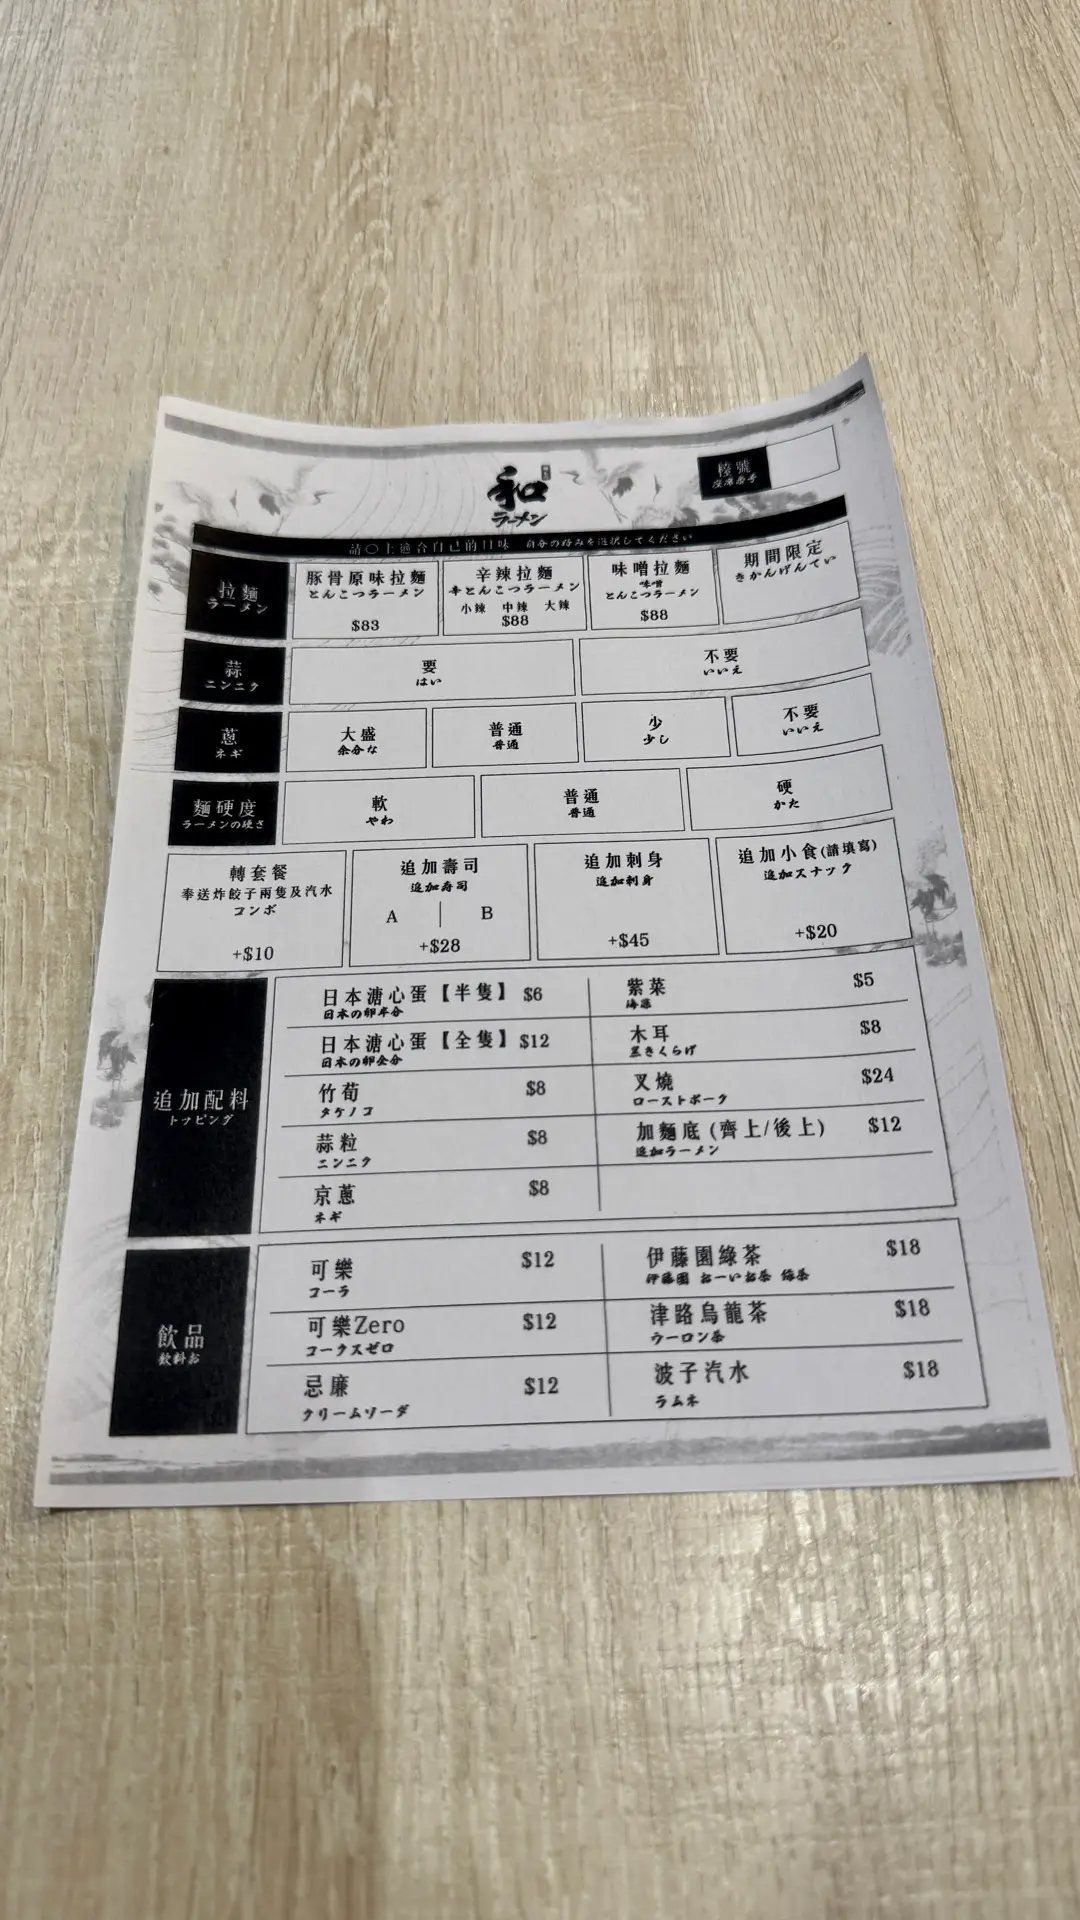 和
ラーメン
檯號
座席番号
請〇上適合自己的口味 自分の好みを選択してください
拉麵
ラーメン
豚骨原味拉麵
とんこつラーメン
$83
辛辣拉麵
辛とんこつラーメン
小辣 中辣 大辣
$88
味噌拉麵
味噌
とんこつラーメン
$88
期間限定
きかんげんてい
蒜
ニンニク
要
はい
不要
いいえ
蔥
ネギ
大盛
余分な
普通
普通
少
少し
不要
いいえ
麵硬度
ラーメンの硬さ
軟
やわ
普通
普通
硬
かた
轉套餐
奉送炸餃子兩隻及汽水
コンボ
+$10
追加壽司
追加寿司
A | B
+$28
追加刺身
追加刺身
+$45
追加小食(請填寫)
追加スナック
+$20
追加配料
トッピング
日本溏心蛋【半隻】 $6
日本の卵半分
日本溏心蛋【全隻】 $12
日本の卵全分
竹荀 $8
タケノコ
蒜粒 $8
ニンニク
京蔥 $8
ネギ
紫菜 $5
海藻
木耳 $8
黒きくらげ
叉燒 $24
ローストポーク
加麵底 (齊上/後上) $12
追加ラーメン
飲品
飲料お
可樂 $12
コーラ
可樂Zero $12
コークスゼロ
忌廉 $12
クリームソーダ
伊藤園綠茶 $18
伊藤園 おーいお茶 緑茶
津路烏龍茶 $18
ウーロン茶
波子汽水 $18
ラムネ